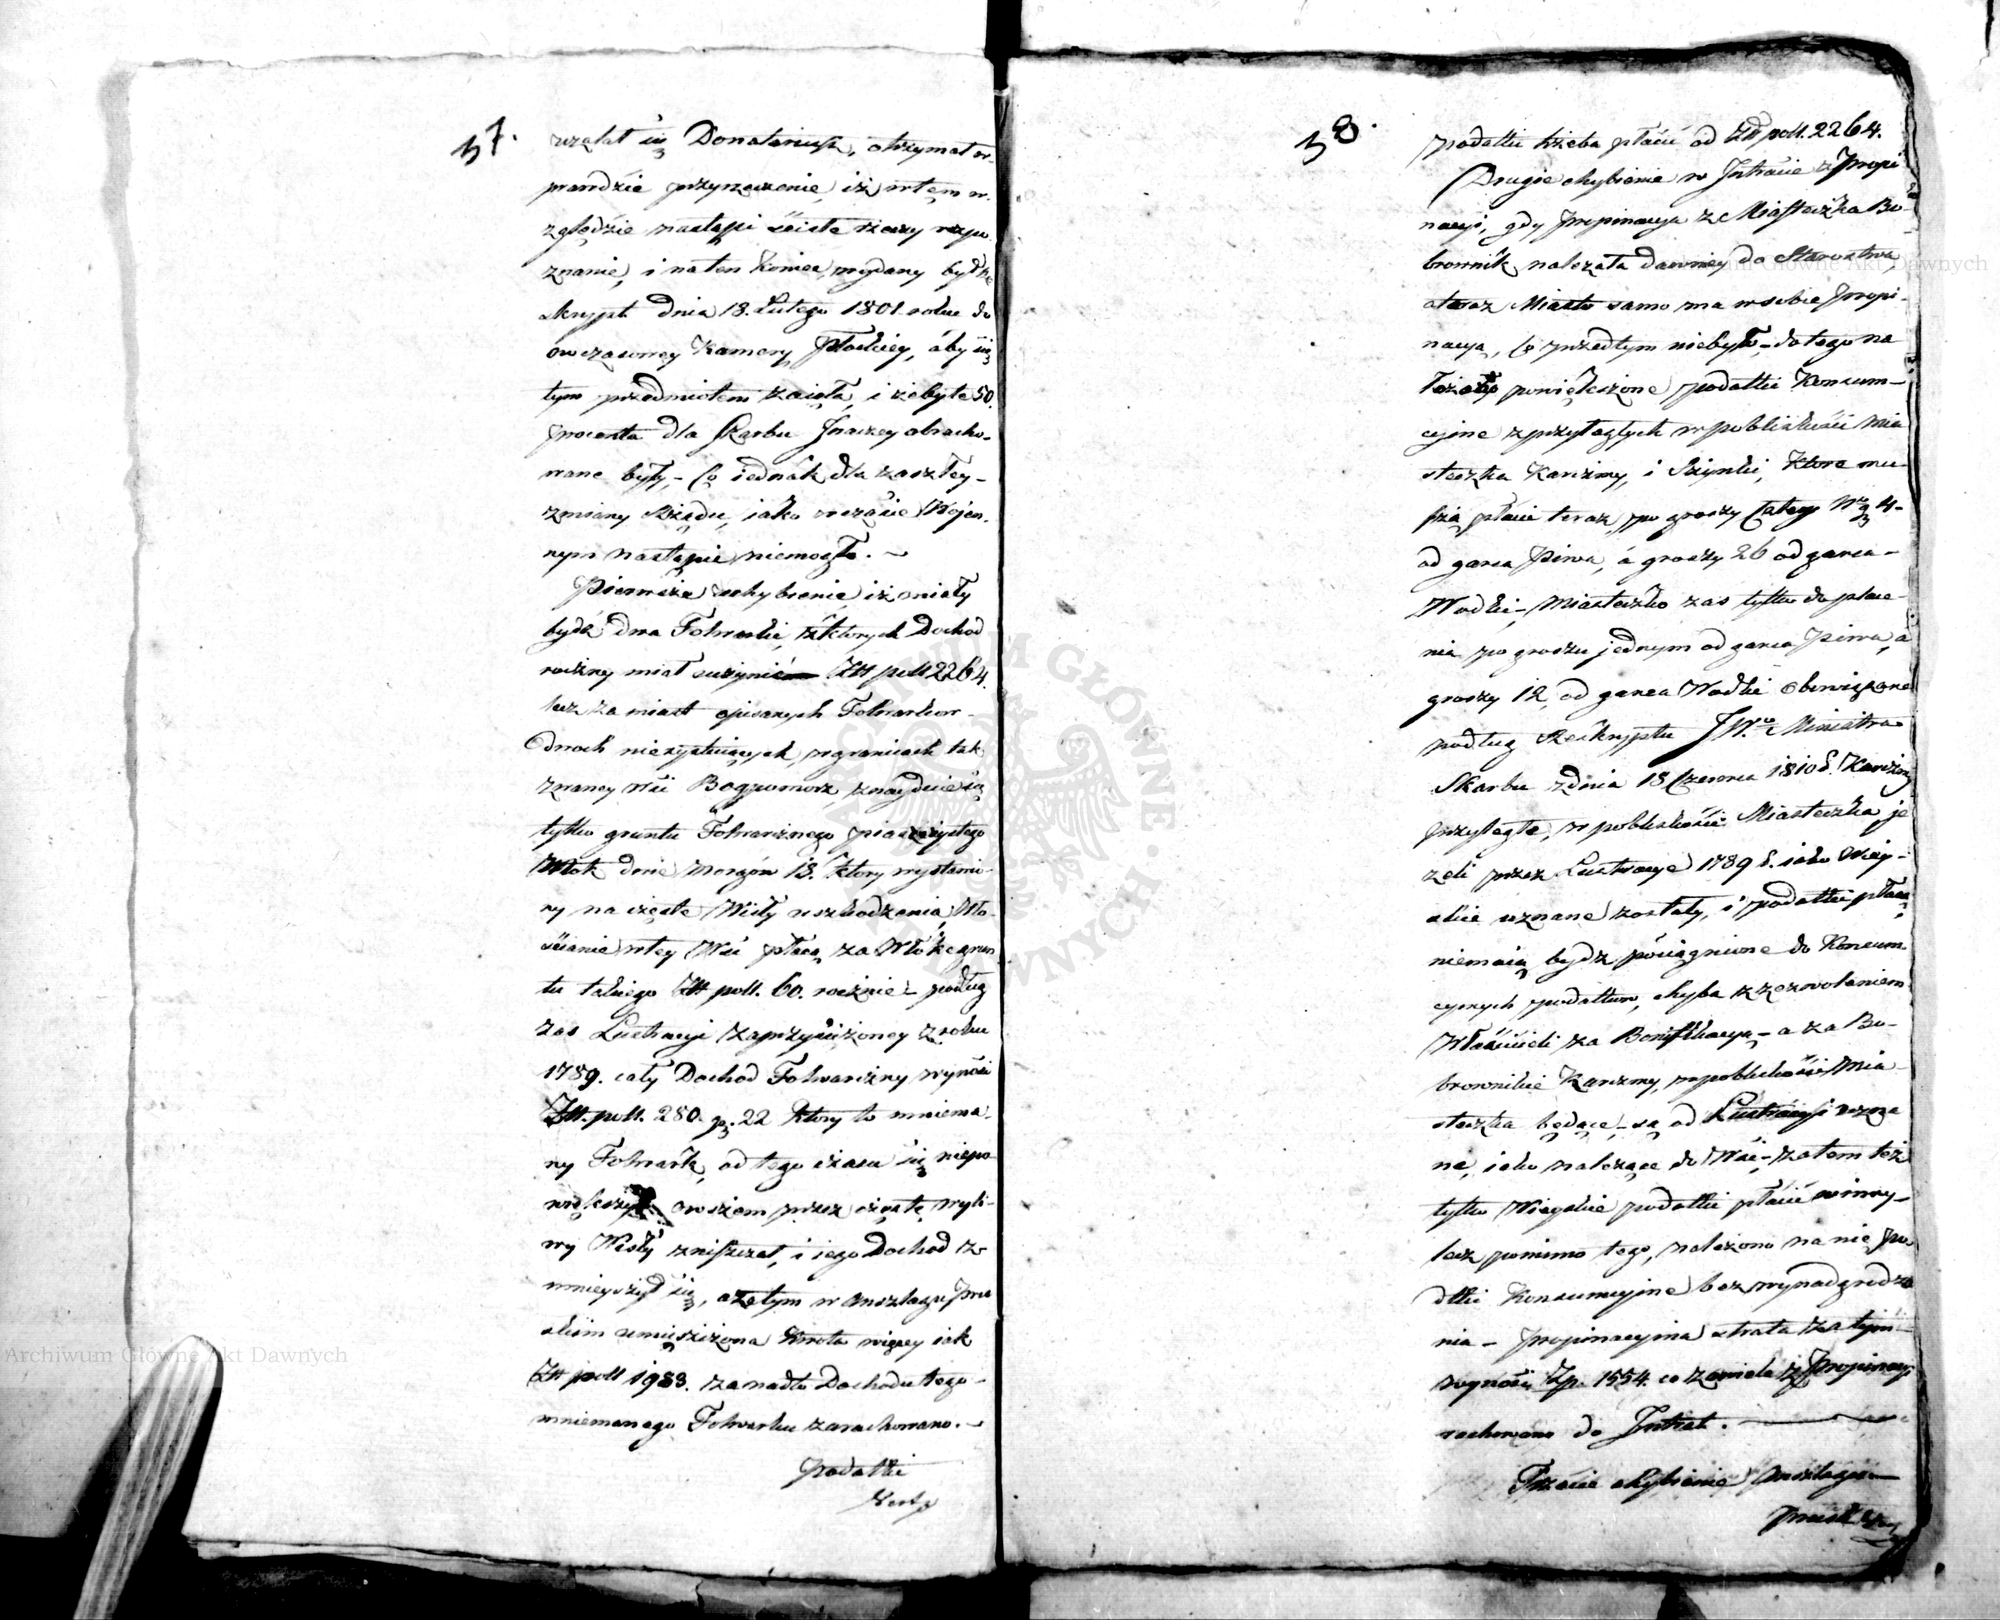 37.
uzalał się Donataryusz, otrzymał w
prawdzie przyrzeczenie, iż w tem w
zględzie nastąpi ścisłe rzeczy rozpo
znanie, i na ten koniec wydany był Re
skrypt Dnia 18. Lutego 1801. roku do
owczasowey Kamery Płockiey, aby się
tym przedmiotem zaięła, i żeby te 50.
procenta dla Skarbu Jnaczey obracho-
wane były, - Co iednak dla zaszłey -
zmiany Rządu, iako w czasie Wojen-
nym nastąpić niemogło. -
Pierwsze uchybienie, iż miały
bydź dwa Folwarki, z których Dochod
roczny miał czynić Złł poll 2264.
lecz za miast opisanych Folwarkow -
Dwoch niezyskuiących, w granicach tak
zwaney wsi Bogpomoz, znayduie się
tylko gruntu Folwarcznego piaszczystego
Włok dwie Morgów 18. który wystawio-
ny na częste Wisły uszkodzenia, Wło-
ścianie w tey Wsi płacą za Włókę grun-
tu takiego Złł poll. 60. rocznie - podług
zas Lustracyi zaprzysiężoney z roku
1789. cały Dochod Folwarczny wynosi
Złł. poll. 280. gr. 22 Który to mniema-
ny Folwark, od tego czasu się niepo
większył owszem przez częste wyle-
wy Wisły zniszczał, i iego Dochod z
mnieyszył się, a zetym w Anszlagu Pru
skim umieszczona Kwota więcey iak
Złł poll 1983. za nadto Dochodu tego -
mniemanego Folwarku zarachowano. -
Podatki
38.
podatki trzeba płacić od Złł poll. 2264.
Drugie chybienie w Jntracie z Propi
nacyi, gdy Propinacya z Miasteczka Bo-
brownik należała dawniey do Starostwa
a teraz Miasto samo ma w sobie Propi-
nacyą, Co przedtym niebyło, - do tego na
łożono powiększone podatki Konsum-
cyjne z przyległych w pobliskości Mia
steczka Karczmy, i Szynki, Które mu-
szą płacić teraz, po groszy Cztery Nr 4 -
od garca Piwa, á groszy 26 od garca -
Wodki, - Miasteczko zas tylko do płace-
nia po groszu jednym od garca Piwa, a
groszy 12 od garca Wodki obowiązane
podług Reskryptu JW. Ministra
Skarbu z dnia 18 Czerwca 1810 r. Karczmy
przyległe, w pobliskości Miasteczka je
żeli przez Lustracye 1789 r. iako Wiey-
skie uznane zostały, i podatki płacą
niemaią bydź pociągnione do Konsum-
cyjnych podatkow, chyba z zezwoleniem
Właścicieli za Bonifikacyą, - a za Bo-
brownikie Karczmy, w pobliskości Mia-
steczka będące, - są od Lustracyi uzna
ne, iako należące do Wsi, - zatem też
tylko Wieyskie podatki płacić winny -
lecz pomimo tego, nałożono na nie Po-
datki Konsumcyjne bez wynadgrodze
nia - Propinacyina strata za tym -
wynosi Zp. 1554. co zawiele z Propinacyi
rachowano do Jntrat. -
Trzecie chybienie Anszlagu -
Prusk
Archiwum Główne Akt Dawnych
Archiwum Główne Akt Dawnych
ARCHIWUM GŁÓWNE AKT DAWNYCH